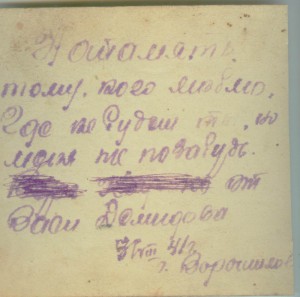 На память
тому, кого люблю.
Где не будеш ты, но
меня не позабудь.
от
Васи Демидова
VIII 41 г.
г. Ворошилов